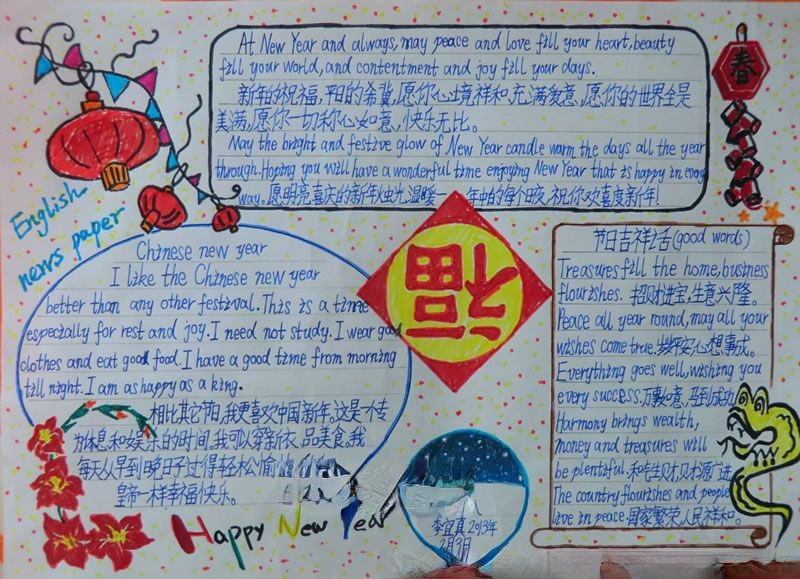 At New Year and always, may peace and love fill your heart, beauty
fill your world, and contentment and joy fill your days.
新年的祝福，平日的希冀，愿你心境祥和、充满爱意，愿你的世界全是
美满，愿你一切称心如意，快乐无比。
May the bright and festive glow of New Year candle warm the days all the year
through. Hoping you will have a wonderful time enjoying New Year that is happy in every
way. 愿明亮喜庆的新年烛光温暖一年中的每个日夜，祝你欢喜度新年!
春
English
news paper
福
Chinese new year
I like the Chinese new year
better than any other festival. This is a time
especially for rest and joy. I need not study. I wear good
clothes and eat good food. I have a good time from morning
till night. I am as happy as a king.
相比其它节日,我更喜欢中国新年。这是个专
为休息和娱乐的时间,我可以穿新衣、品美食。我
每天从早到晚日子过得轻松愉
皇帝一样幸福快乐。
Happy New Year
李宜真 2013年
2月3日
节日吉祥话 (good words)
Treasures fill the home, business
flourishes. 招财进宝,生意兴隆。
Peace all year round, may all your
wishes come true. 岁岁平安,心想事成。
Everything goes well, wishing you
every success. 万事如意,马到成功
Harmony brings wealth,
money and treasures will
be plentiful. 和气生财,财源广进
The country flourishes and people
live in peace. 国家繁荣人民祥和。